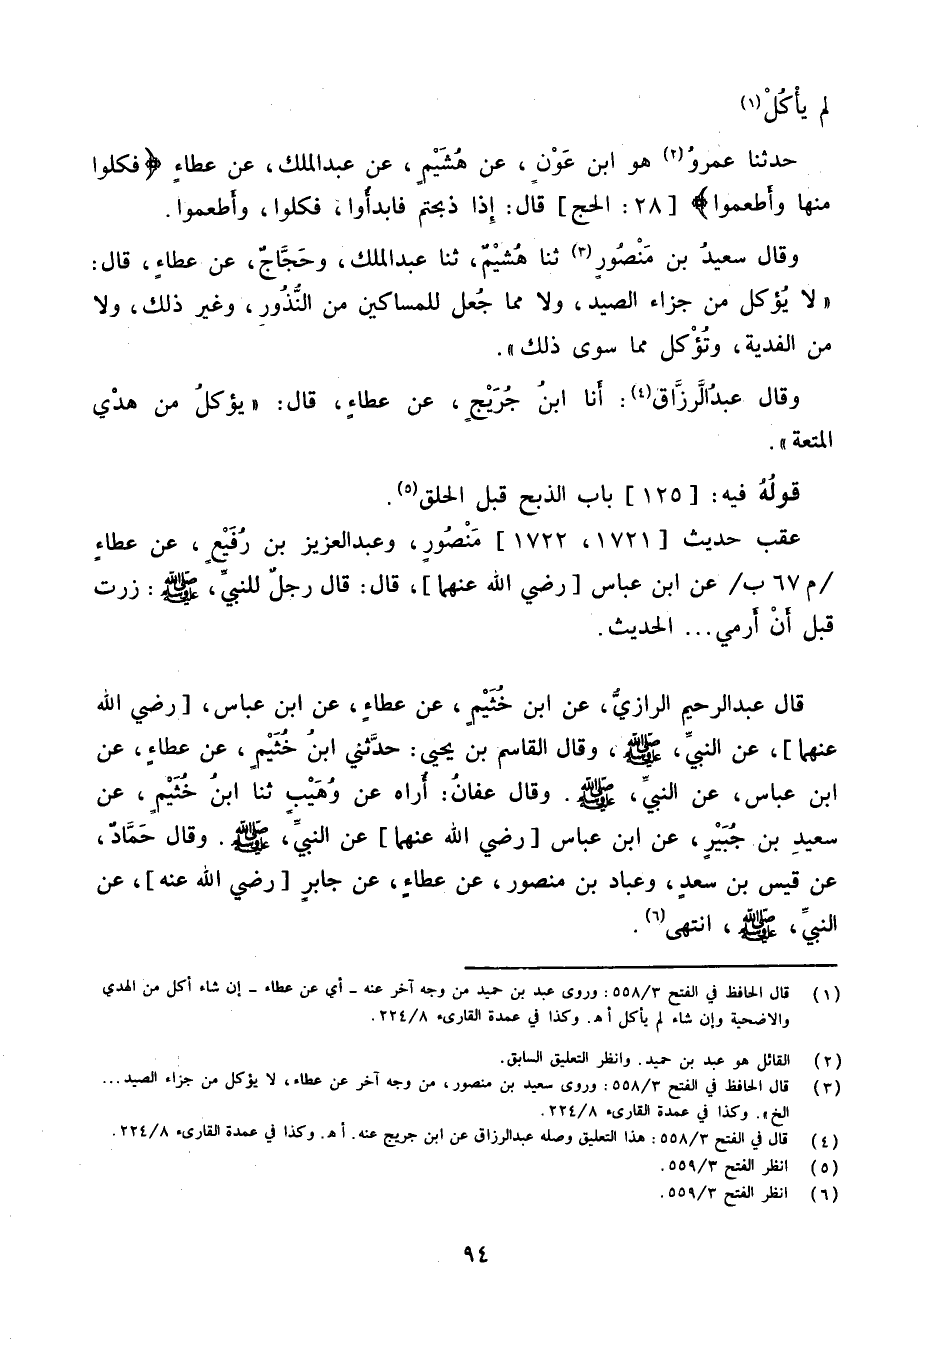 لم يأكُلْ(١)
حدثنا عمروُ(٢) هو ابن عَوْنٍ، عن هُشَيْمٍ، عن عبدالملك، عن عطاءٍ ﴿فكلوا
منها وأَطعموا﴾ [٢٨: الحج] قال: إِذا ذبحتم فابدأُوا، فكلوا، وأَطعموا.
وقال سعيدُ بن مَنْصُورٍ(٣) ثنا هُشَيْمٌ، ثنا عبدالملك، وحَجَّاجٌ، عن عطاءٍ، قال:
« لا يُؤكل من جزاء الصيد، ولا مما جُعل للمساكين من النُّذُورِ، وغير ذلك، ولا
من الفدية، وتُؤْكل مما سوى ذلك».
وقال عبدُالرَّزَّاق(٤): أَنا ابنُ جُرَيْجٍ، عن عطاءٍ، قال: « يؤكلُ من هدْيِ
المتعة».
قولُهُ فيه: [١٢٥] باب الذبح قبل الحلق(٥).
عقب حديث [١٧٢١، ١٧٢٢] مَنْصُورٍ، وعبدالعزيز بن رُفَيْعٍ، عن عطاءٍ
/م ٦٧ ب/ عن ابن عباس [رضي الله عنهما]، قال: قال رجلٌ للنبيِّ، ﷺ: زرت
قبل أَنْ أَرمي... الحديث.
قال عبدالرحيم الرازيُّ، عن ابن خُثَيْمٍ، عن عطاءٍ، عن ابن عباس، [رضي الله
عنهما]، عن النبيِّ، ﷺ، وقال القاسم بن يحيى: حدَّثني ابنُ خُثَيْمٍ، عن عطاءٍ، عن
ابن عباس، عن النبيِّ، ﷺ. وقال عفانُ: أُراه عن وُهَيْبٍ ثنا ابنُ خُثَيْمٍ، عن
سعيدِ بن جُبَيْرٍ، عن ابن عباس [رضي الله عنهما] عن النبيِّ، ﷺ. وقال حَمَّادٌ،
عن قيس بن سعدٍ، وعباد بن منصور، عن عطاءٍ، عن جابرٍ [رضي الله عنه]، عن
النبيِّ، ﷺ، انتهى(٦).
(١) قال الحافظ في الفتح ٥٥٨/٣: وروى عبد بن حميد من وجه آخر عنه - أي عن عطاء - إن شاء أكل من الهدي
والاضحية وإن شاء لم يأكل أ هـ. وكذا في عمدة القارىء ٢٢٤/٨.
(٢) القائل هو عبد بن حميد. وانظر التعليق السابق.
(٣) قال الحافظ في الفتح ٥٥٨/٣: وروى سعيد بن منصور، من وجه آخر عن عطاء، لا يؤكل من جزاء الصيد...
الخ». وكذا في عمدة القارىء ٢٢٤/٨.
(٤) قال في الفتح ٥٥٨/٣: هذا التعليق وصله عبدالرزاق عن ابن جريج عنه. أ هـ. وكذا في عمدة القارىء ٢٢٤/٨.
(٥) انظر الفتح ٥٥٩/٣.
(٦) انظر الفتح ٥٥٩/٣.
٩٤